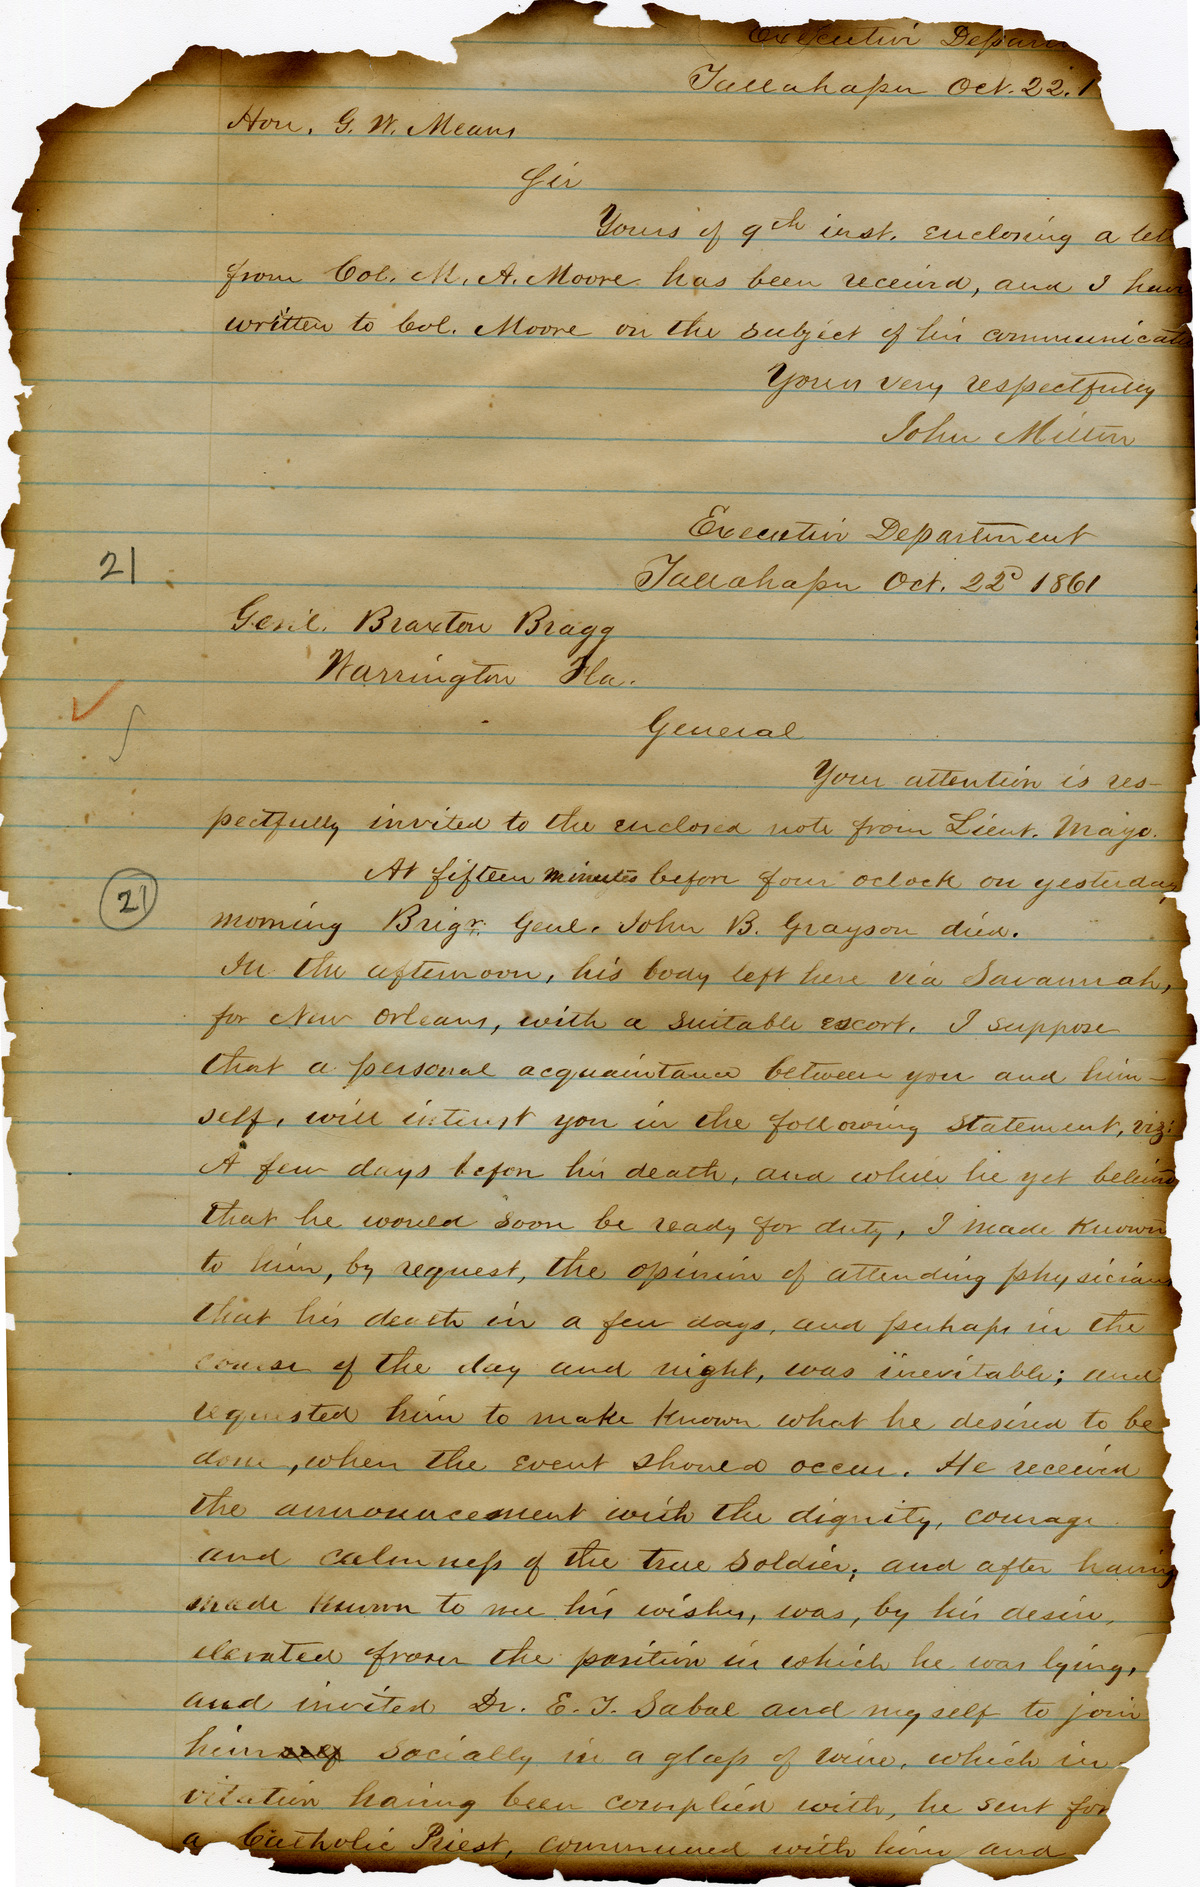 Executive Depar
Tallahassee Oct. 22. 1
Hon. G. W. Means
Sir
Yours of 9th inst. enclosing a let
from Col. M. A. Moore has been received, and I have
written to Col. Moore on the subject of his communicati
Yours very respectfully
John Milton
Executive Department
21
Tallahassee Oct. 22d 1861
Genl. Braxton Bragg
Warrington Fla.
General
Your attention is res-
pectfully invited to the enclosed note from Lieut. Mayo.
At fifteen minutes before four oclock on yesterday
21
morning Brigr. Genl. John B. Grayson died.
In the afternoon, his body left here via Savannah,
for New Orleans, with a suitable escort. I suppose
that a personal acquaintance between you and him-
self, will interest you in the following statement, viz:
A few days before his death, and while he yet believed
that he would soon be ready for duty, I made known
to him, by request, the opinion of attending physicians
that his death in a few days, and perhaps in the
course of the day and night, was inevitable; and
requested him to make known what he desired to be
done, when the event should occur. He received
the announcement with the dignity, courage
and calmness of the true soldier; and after having
made known to me his wishes, was, by his desire,
elevated from the position in which he was lying,
and invited Dr. E. T. Sabal and myself to join
himself socially in a glass of wine, which in-
vitation having been complied with, he sent for
a Catholic Priest, communed with him and